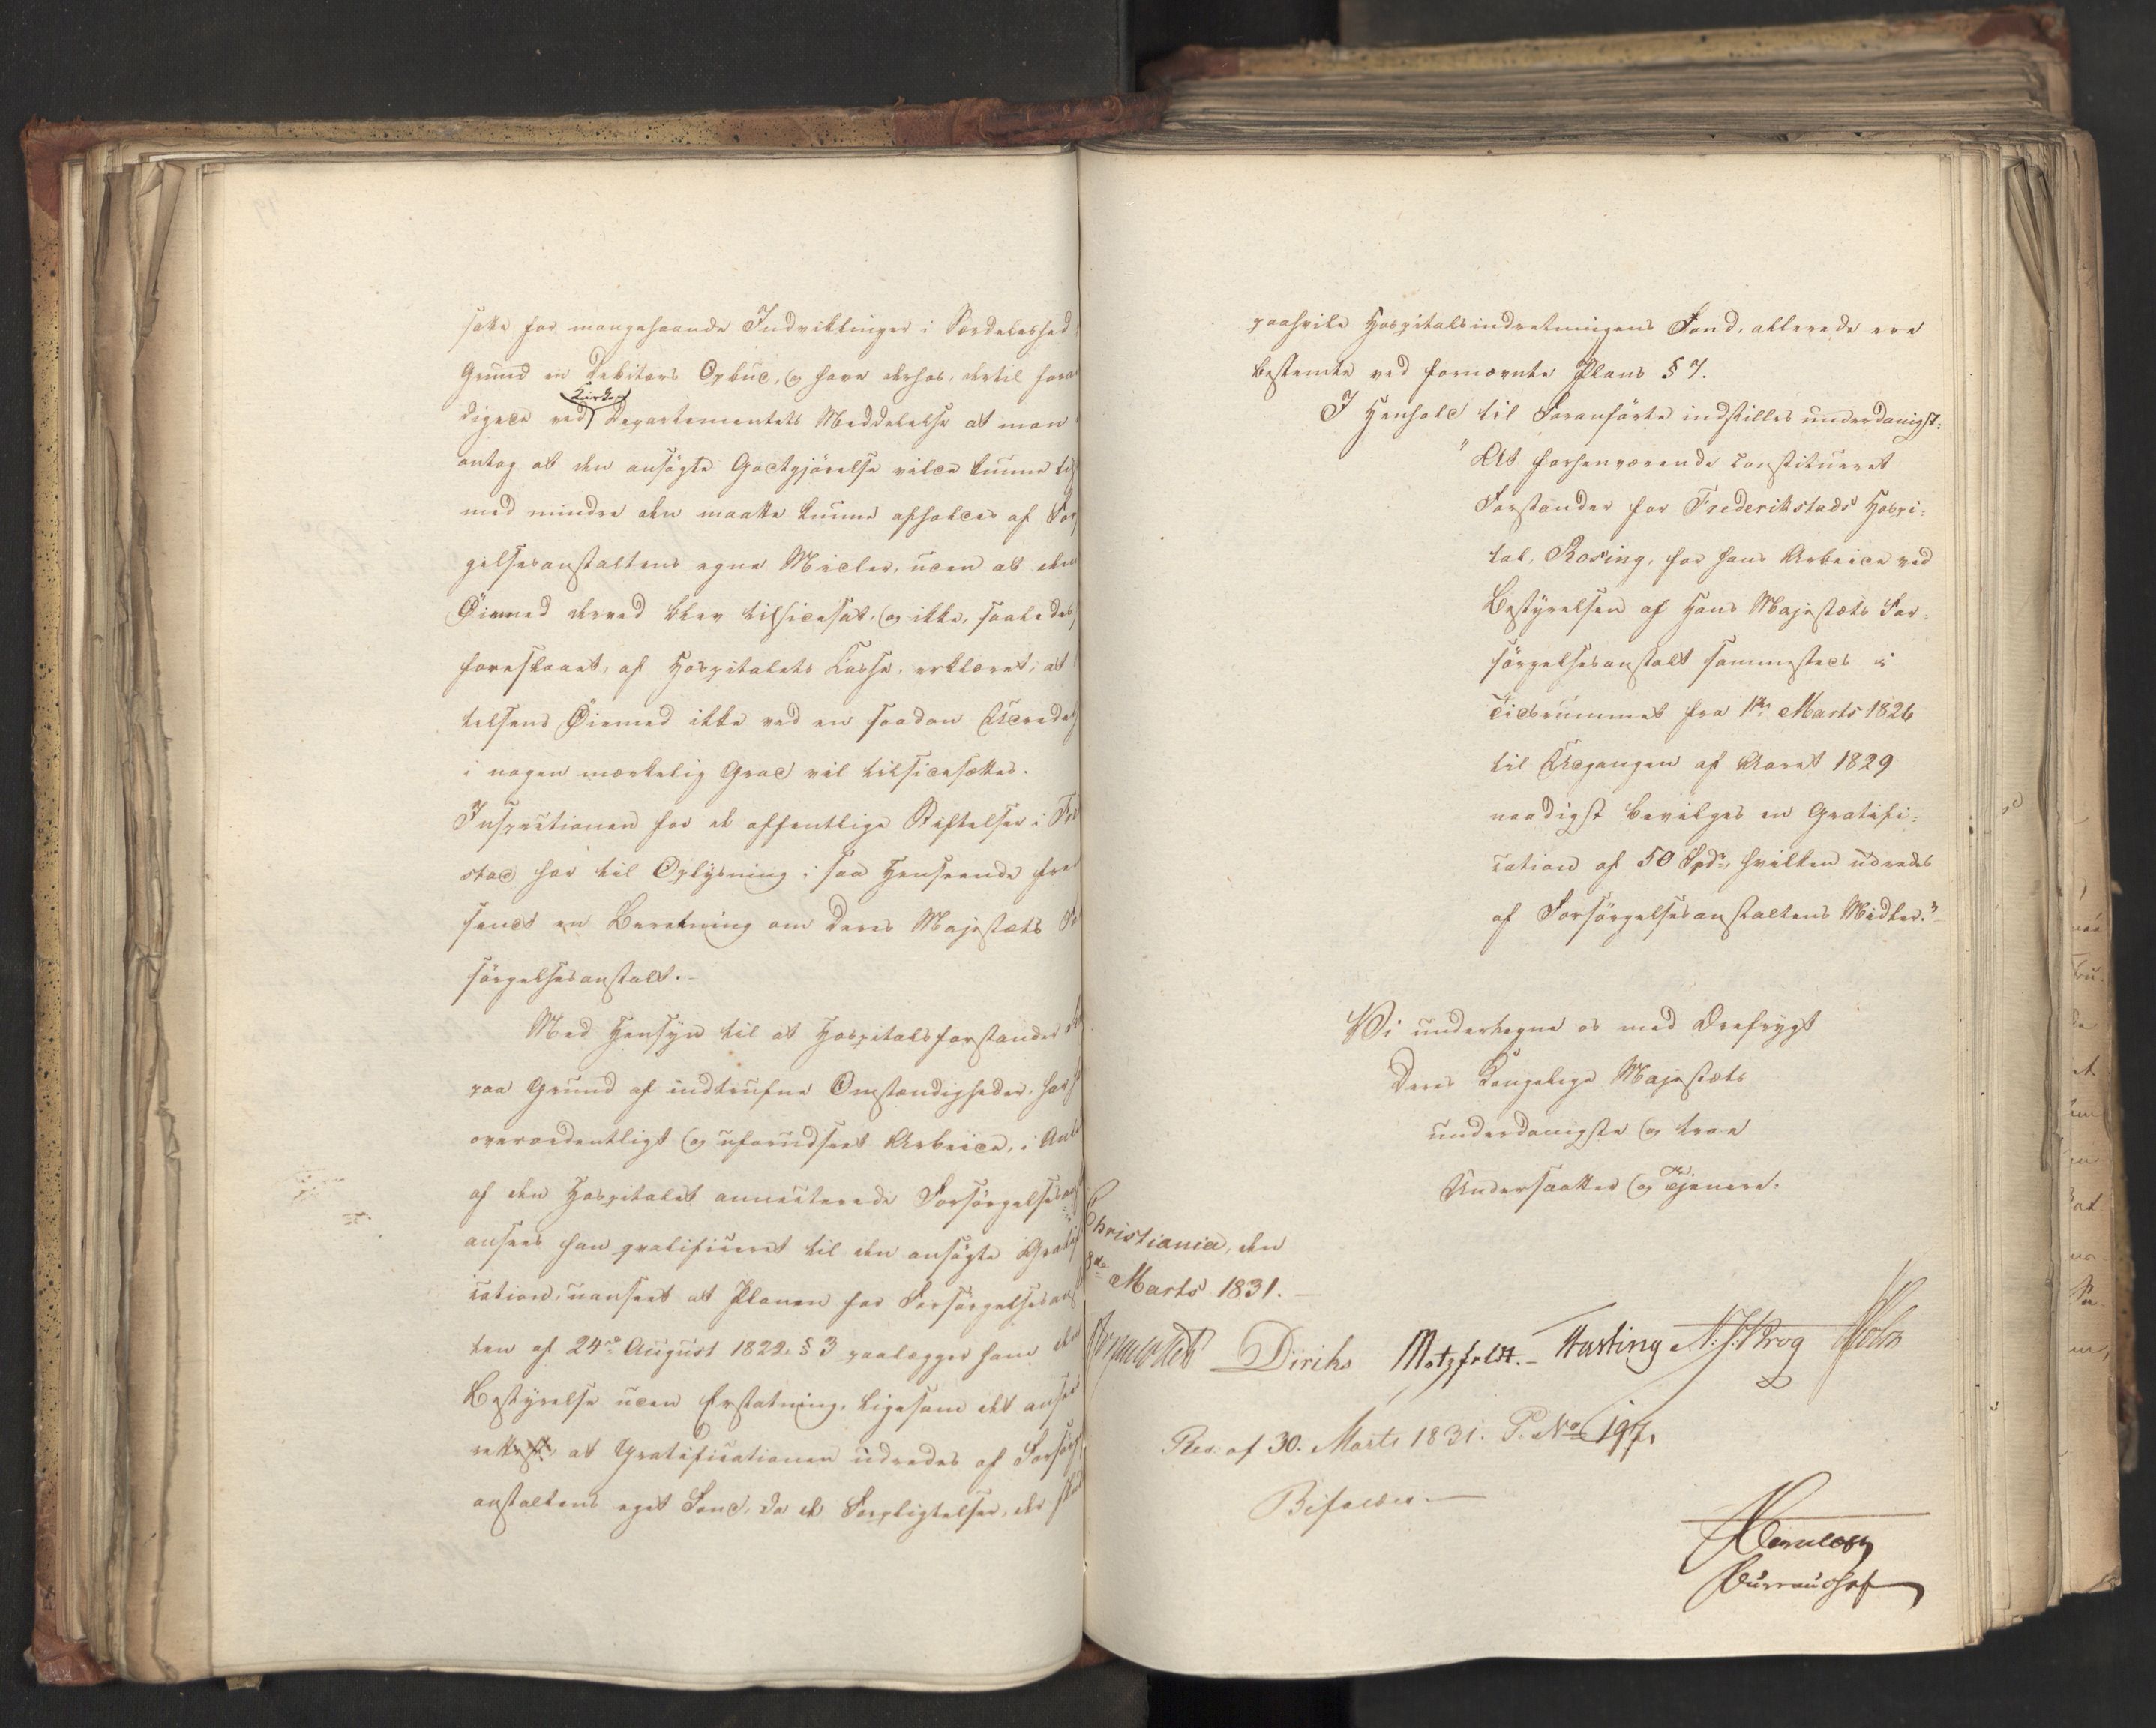 satte for mangehaande Indviklinger i Særdeleshed
Grund en Debitors Opbud, og have derhos, dertil foran
Kirke
diget ved Departementets Meddelelse at man
antog at den ansøgte Godtgjørelse vilde kunne til
med mindre den maatte kunne afholdes af For
gelsesanstaltens egne Midler, uden at dens
Øiemed derved blev tilsidesat, og ikke, saaledes
foreslaaet, af Hospitalets Casse, erklæret, at
telsens Øiemed ikke ved en saadan Udredel
i nogen mærkelig Grad vil tilsidesættes.
Inspectionen for de offentlige Stiftelser i Fre
stad har til Oplysning i saa Henseende frem
sendt en Beretning om Deres Majestæts For
sørgelsesanstalt.-
Med Hensyn til at Hospitalsforstander
paa Grund af indtrufne Omstændigheder, har
overordentligt og uforudseet Arbeide, i Anle
af den Hospitalet annecterede Forsørgelsesanst
ansees han qvalificeret til den ansøgte Gratifi
cation, uanseet at Planen for Forsørgelsesanst
ten af 24de August 1822 § 3 paalægger ham den
Bestyrelse uden Erstatning, ligesom det ansees
rettest, at Gratificationen udredes af Forsørg
anstaltens eget Fond, da de Forpligtelser, der skul
paahvile Hospitalsindretningens Fond, allerede ere
bestemte ved fornævnte Plans § 7.
I Henhold til Foranførte indstilles underdanigst:
"At forhenværende constitueret
Forstander for Frederikstads Hospi-
tal, Rosing, for hans Arbeide ved
Bestyrelsen af Hans Majestæts For-
sørgelsesanstalt sammesteds i
Tidsrummet fra 1ste Marts 1826
til Udgangen af Aaret 1829
naadigst bevilges en Gratifi-
cation af 50 Spdr, hvilken udredes
af Forsørgelsesanstaltens Midler."-
Vi undertegne os med Ærefrygt
Deres Kongelige Majestæts
underdanigste og troe
Undersaatter og Tjenere.
Christiania, den
8de Marts 1831.-
Diriks Motzfeldt.- Fasting N: J: Krog Holst
Res. af 30. Marts 1831. P. No 197.
Bifaldes.-